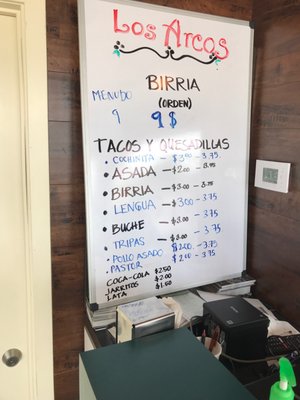 Los Arcos
BIRRIA
MENUDO (ORDEN)
9 9$
TACOS Y QUESADILLAS
• COCHINITA - $3.00 - 3.75
• ASADA - $2.00 - 3.75
• BIRRIA - $3.00 - 3.75
• LENGUA - $3.00 - 3.75
• BUCHE - $3.00 - 3.75
• TRIPAS - $3.00 - 3.75
• POLLO ASADO $2.00 - 3.75
• PASTOR $2.00 - 3.75
COCA-COLA $2.50
JARRITOS $2.00
LATA $1.50